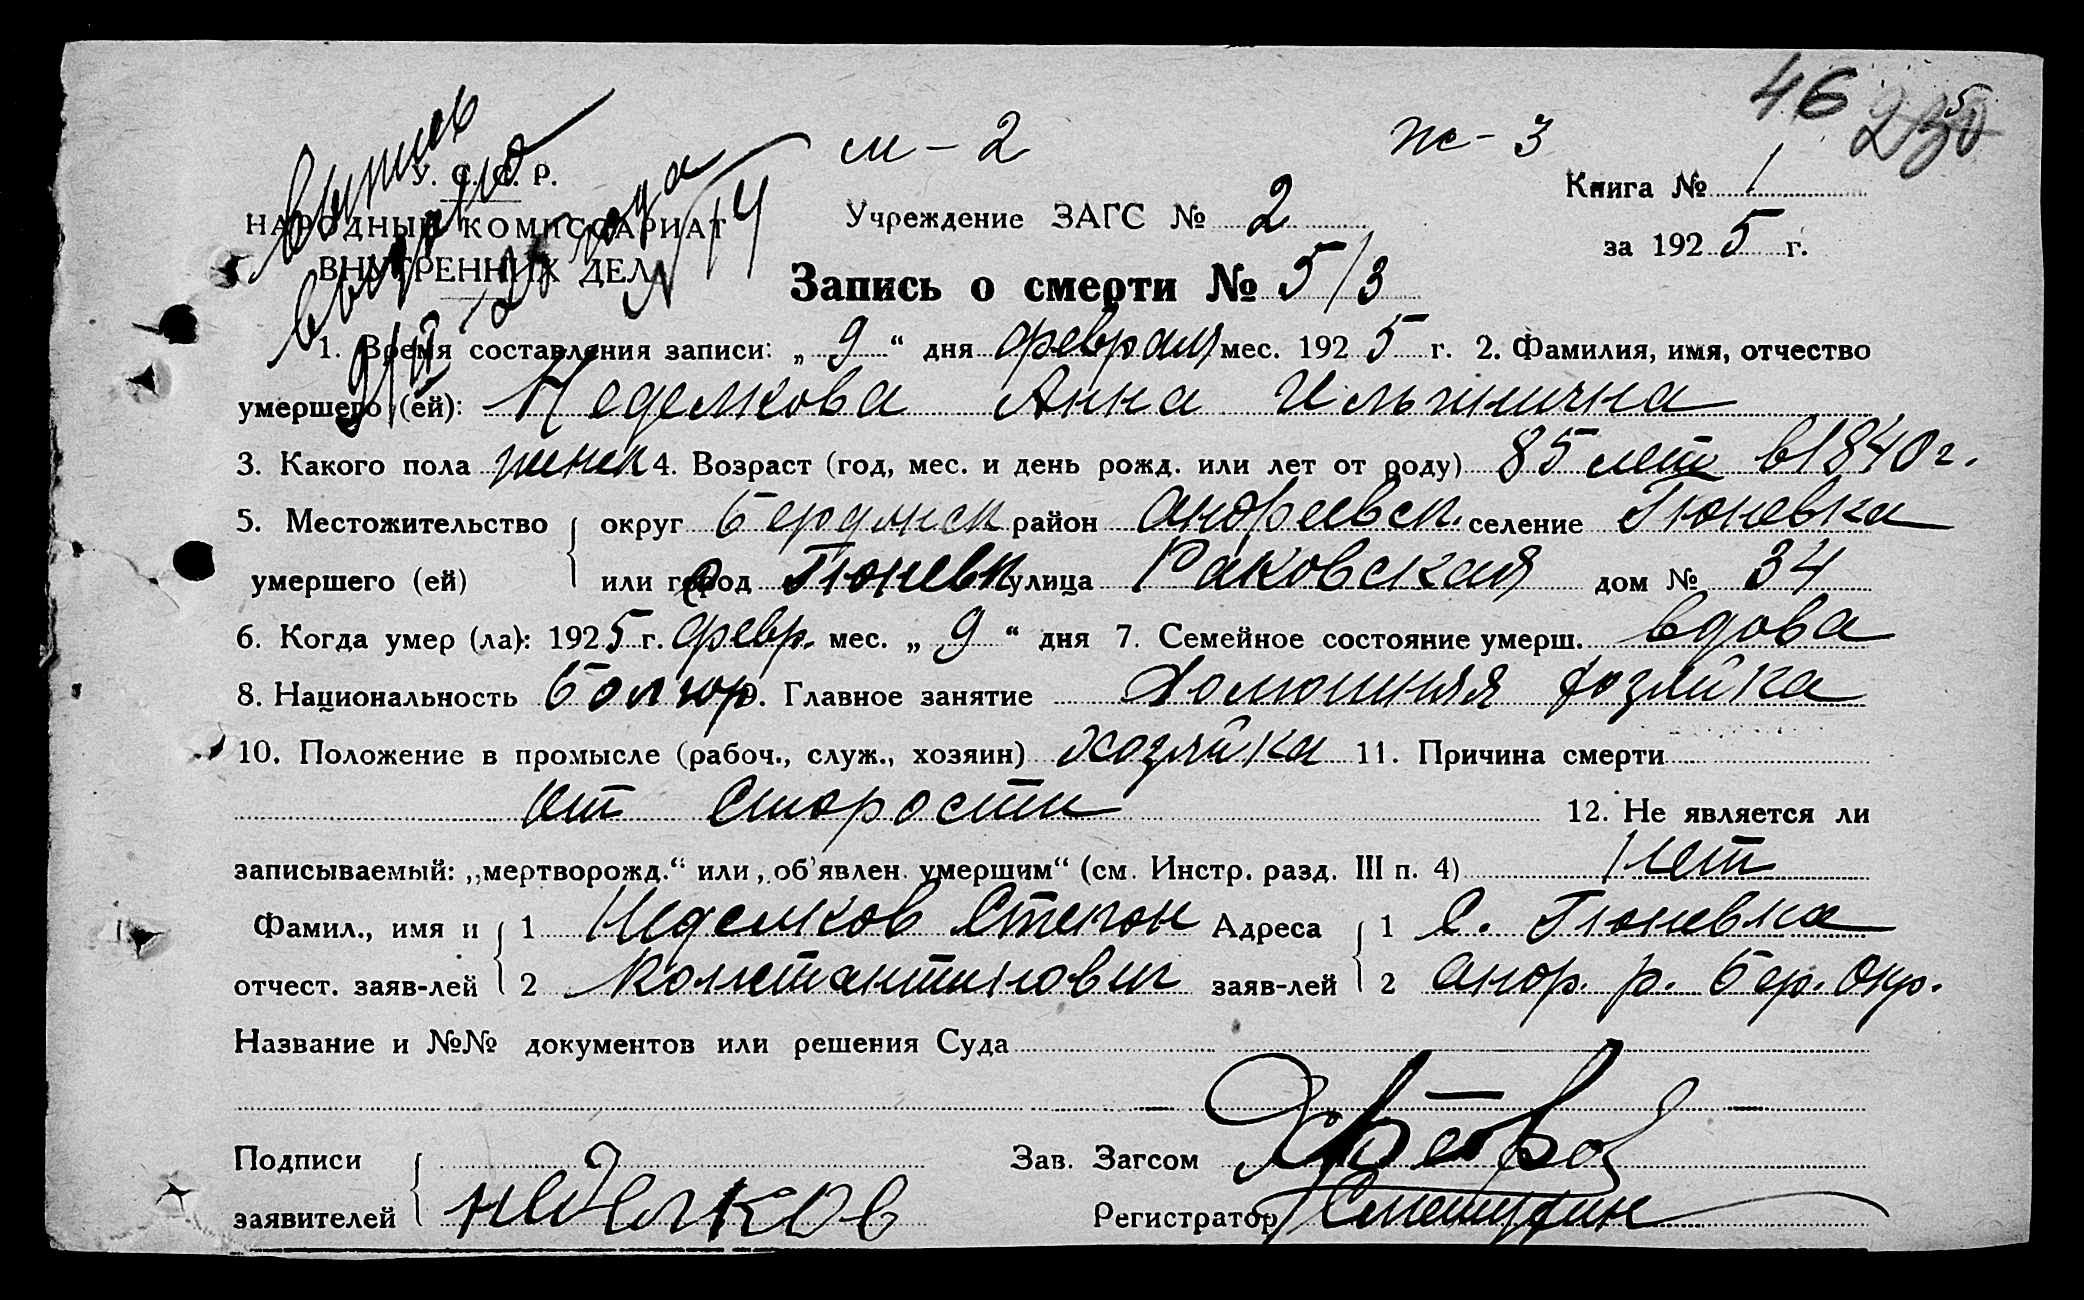 46 250
м - 2 ж - 3
У. С. С. Р.
Книга № 1
НАРОДНЫЙ КОМИССАРИАТ Учреждение ЗАГС № 2
за 1925 г.
ВНУТРЕННИХ ДЕЛ
Запись о смерти № 5/3
1. Время составления записи: „9“ дня февраля мес. 1925 г. 2. Фамилия, имя, отчество
умершего (ей): Неделкова Анна Ильинична
3. Какого пола женск 4. Возраст (год, мес. и день рожд. или лет от роду) 85 лет в 1840 г.
5. Местожительство округ Бердянск район Андреевск. селение Гюневка
умершего (ей) или город Гюневк улица Раковская дом № 34
6. Когда умер (ла): 1925 г. февр. мес. „9“ дня 7. Семейное состояние умерш. вдова
8. Национальность Болгар. Главное занятие Домошняя хозяйка
10. Положение в промысле (рабоч., служ., хозяин) хозяйка 11. Причина смерти
от старости 12. Не является ли
записываемый: „мертворожд.“ или „об'явлен. умершим“ (см. Инстр. разд. III п. 4)
Фамил., имя и 1 Неделков Степан Адреса 1 С. Гюневка
отчест. заяв-лей 2 Константинович заяв-лей 2 Андр. р. Бер. окр.
Название и №№ документов или решения Суда
Подписи Зав. Загсом
заявителей неделков Регистратор